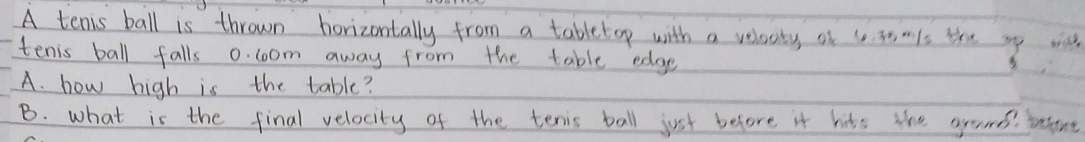 A tenis ball is thrown horizontally from a tabletop with a velocity of m/s the
tenis ball falls 0.60m away from the table edge
A. how high is the table?
B. what is the final velocity of the tenis ball just before it hits the ground? before